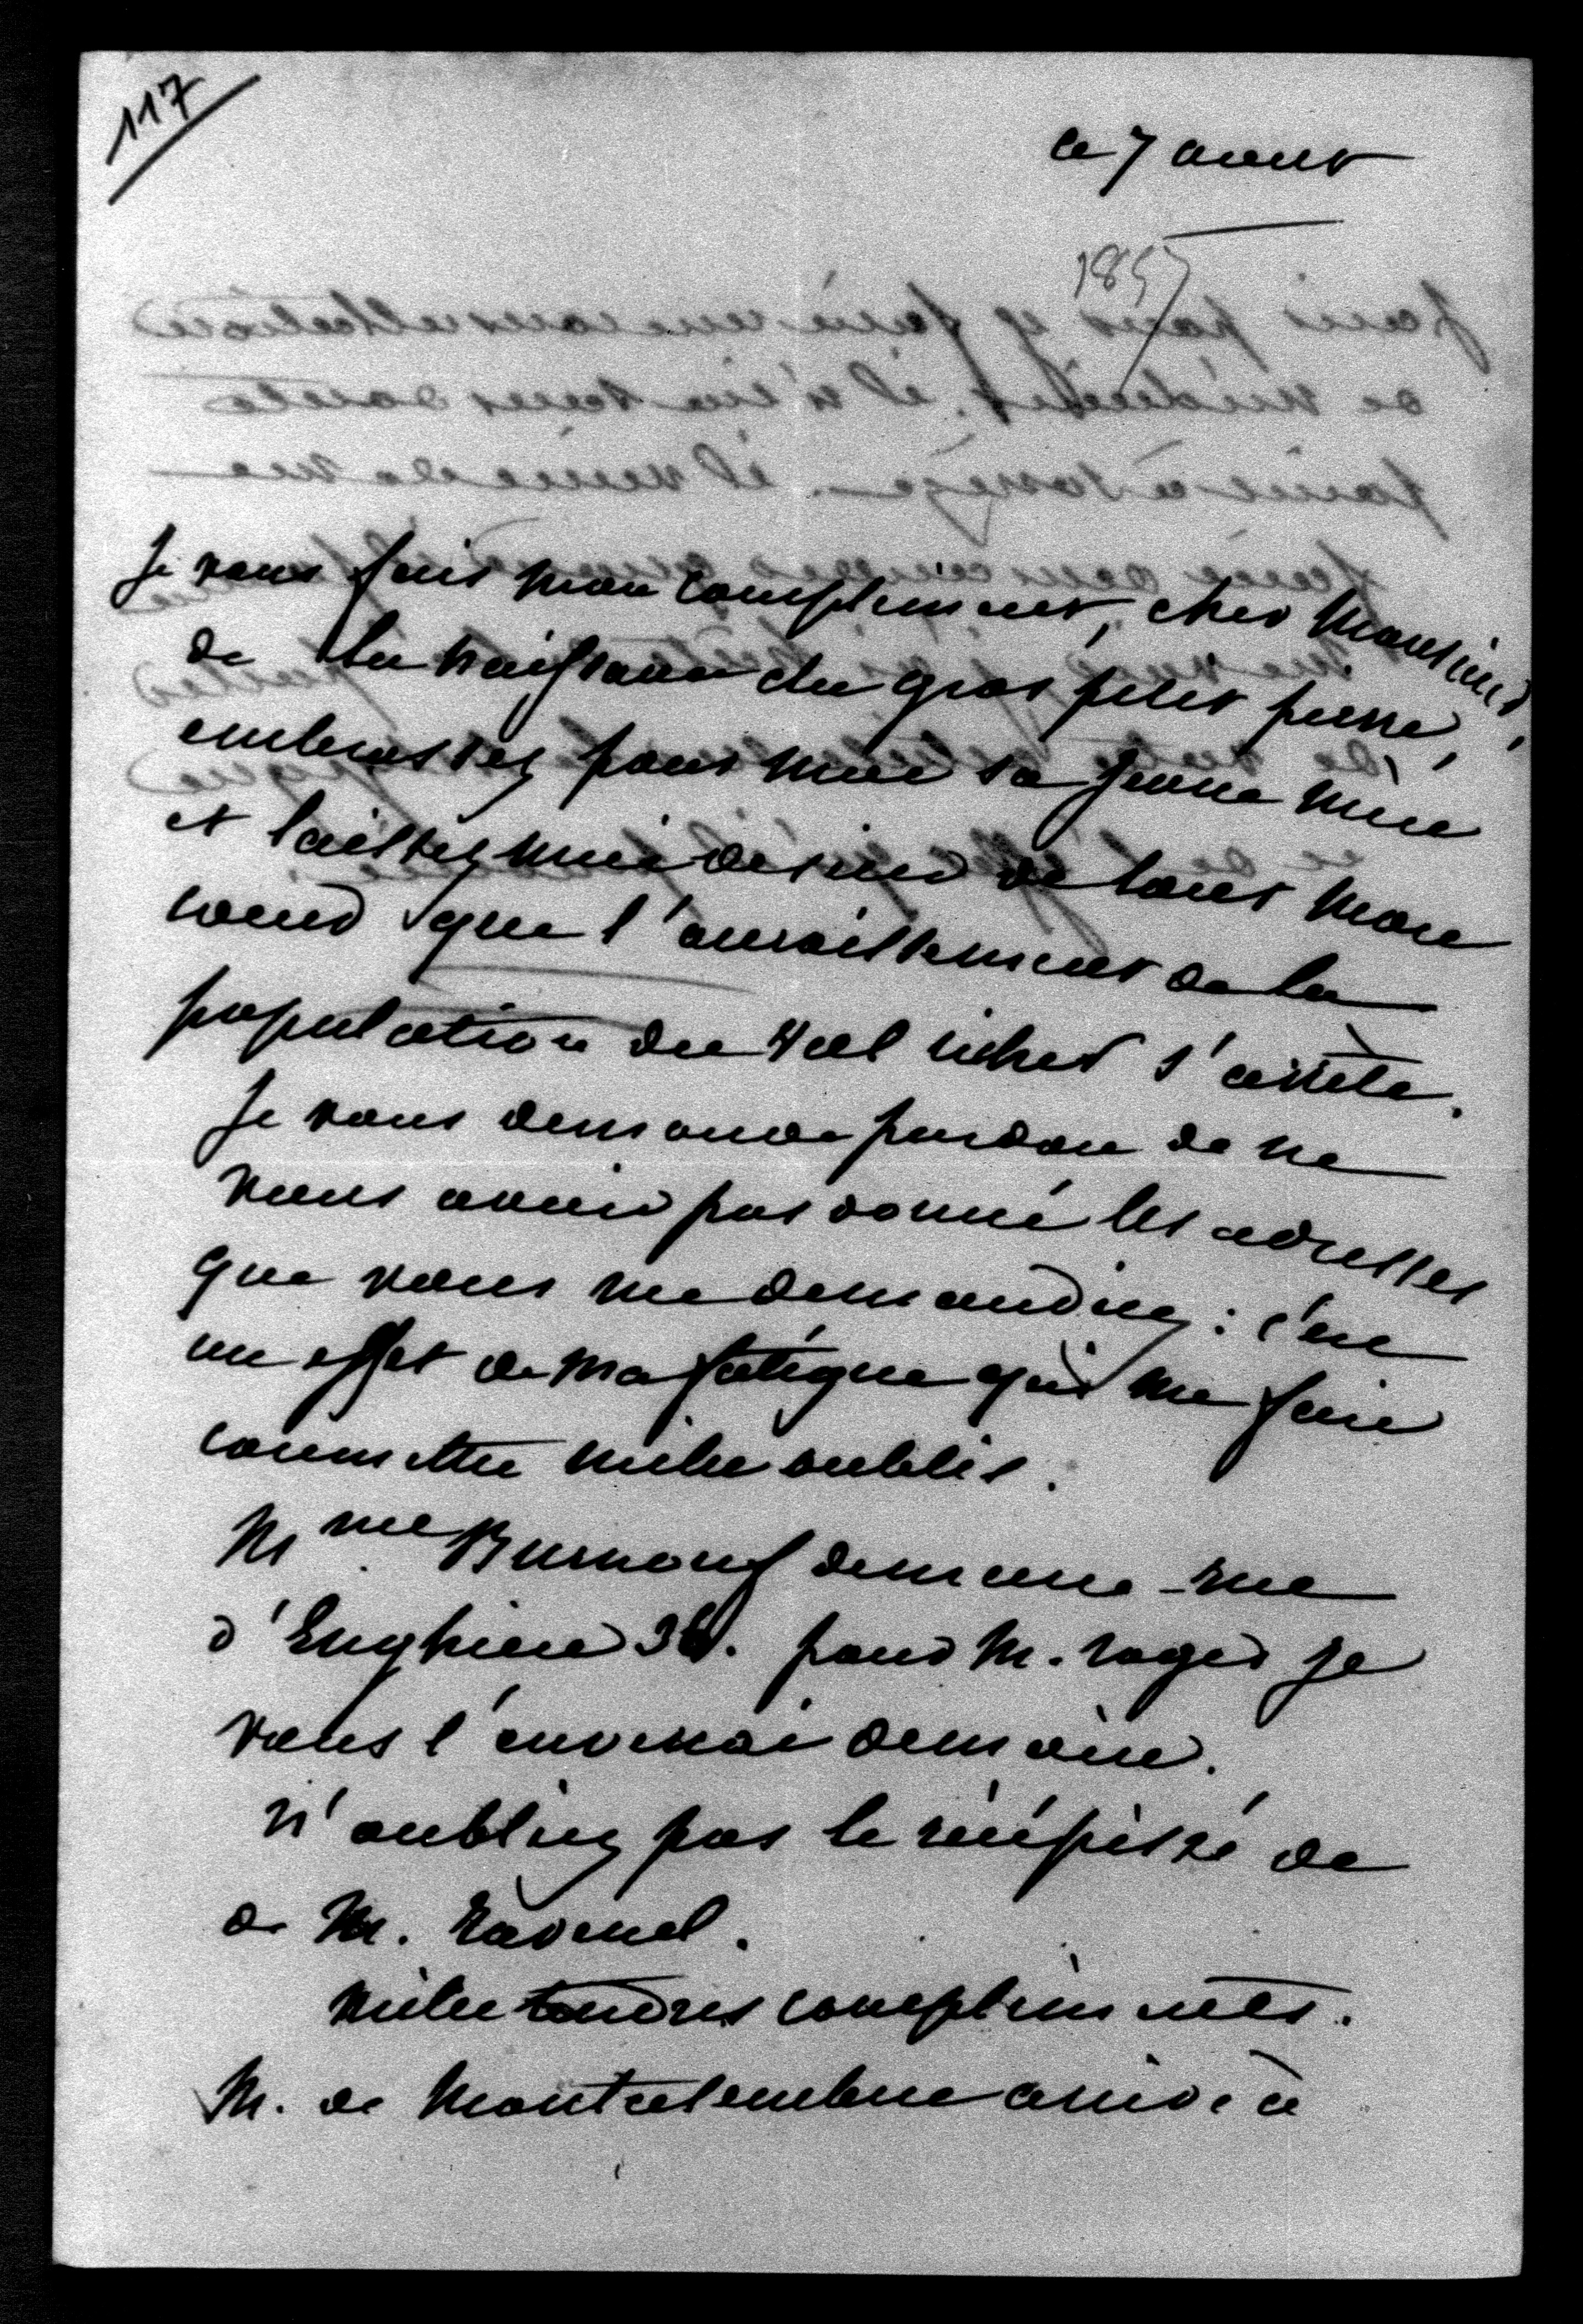 117
ce 7 aout
1857
Je vous fais mon compliment, cher Monsieur,
de la naissance du gros petit pierre,
embrassez pour moi sa jeune mère
et laissez moi desirer de tout mon
coeur que l'accroissement de la
population du Val richer s'arrête.
Je vous demande pardon de ne
vous avoir pas donné les adresses
que vous me demandiez : c'est
un effet de ma fatigue qui me fait
commettre mille oublis.
Mme Burnouf demeure rue
d'Enghien 36. pour M. roger je
vous l'enverrai demain.
N'oubliez pas le récépissé de
de M. Ravenel.
mille tendres compliments.
M. de Montalembert arrive à